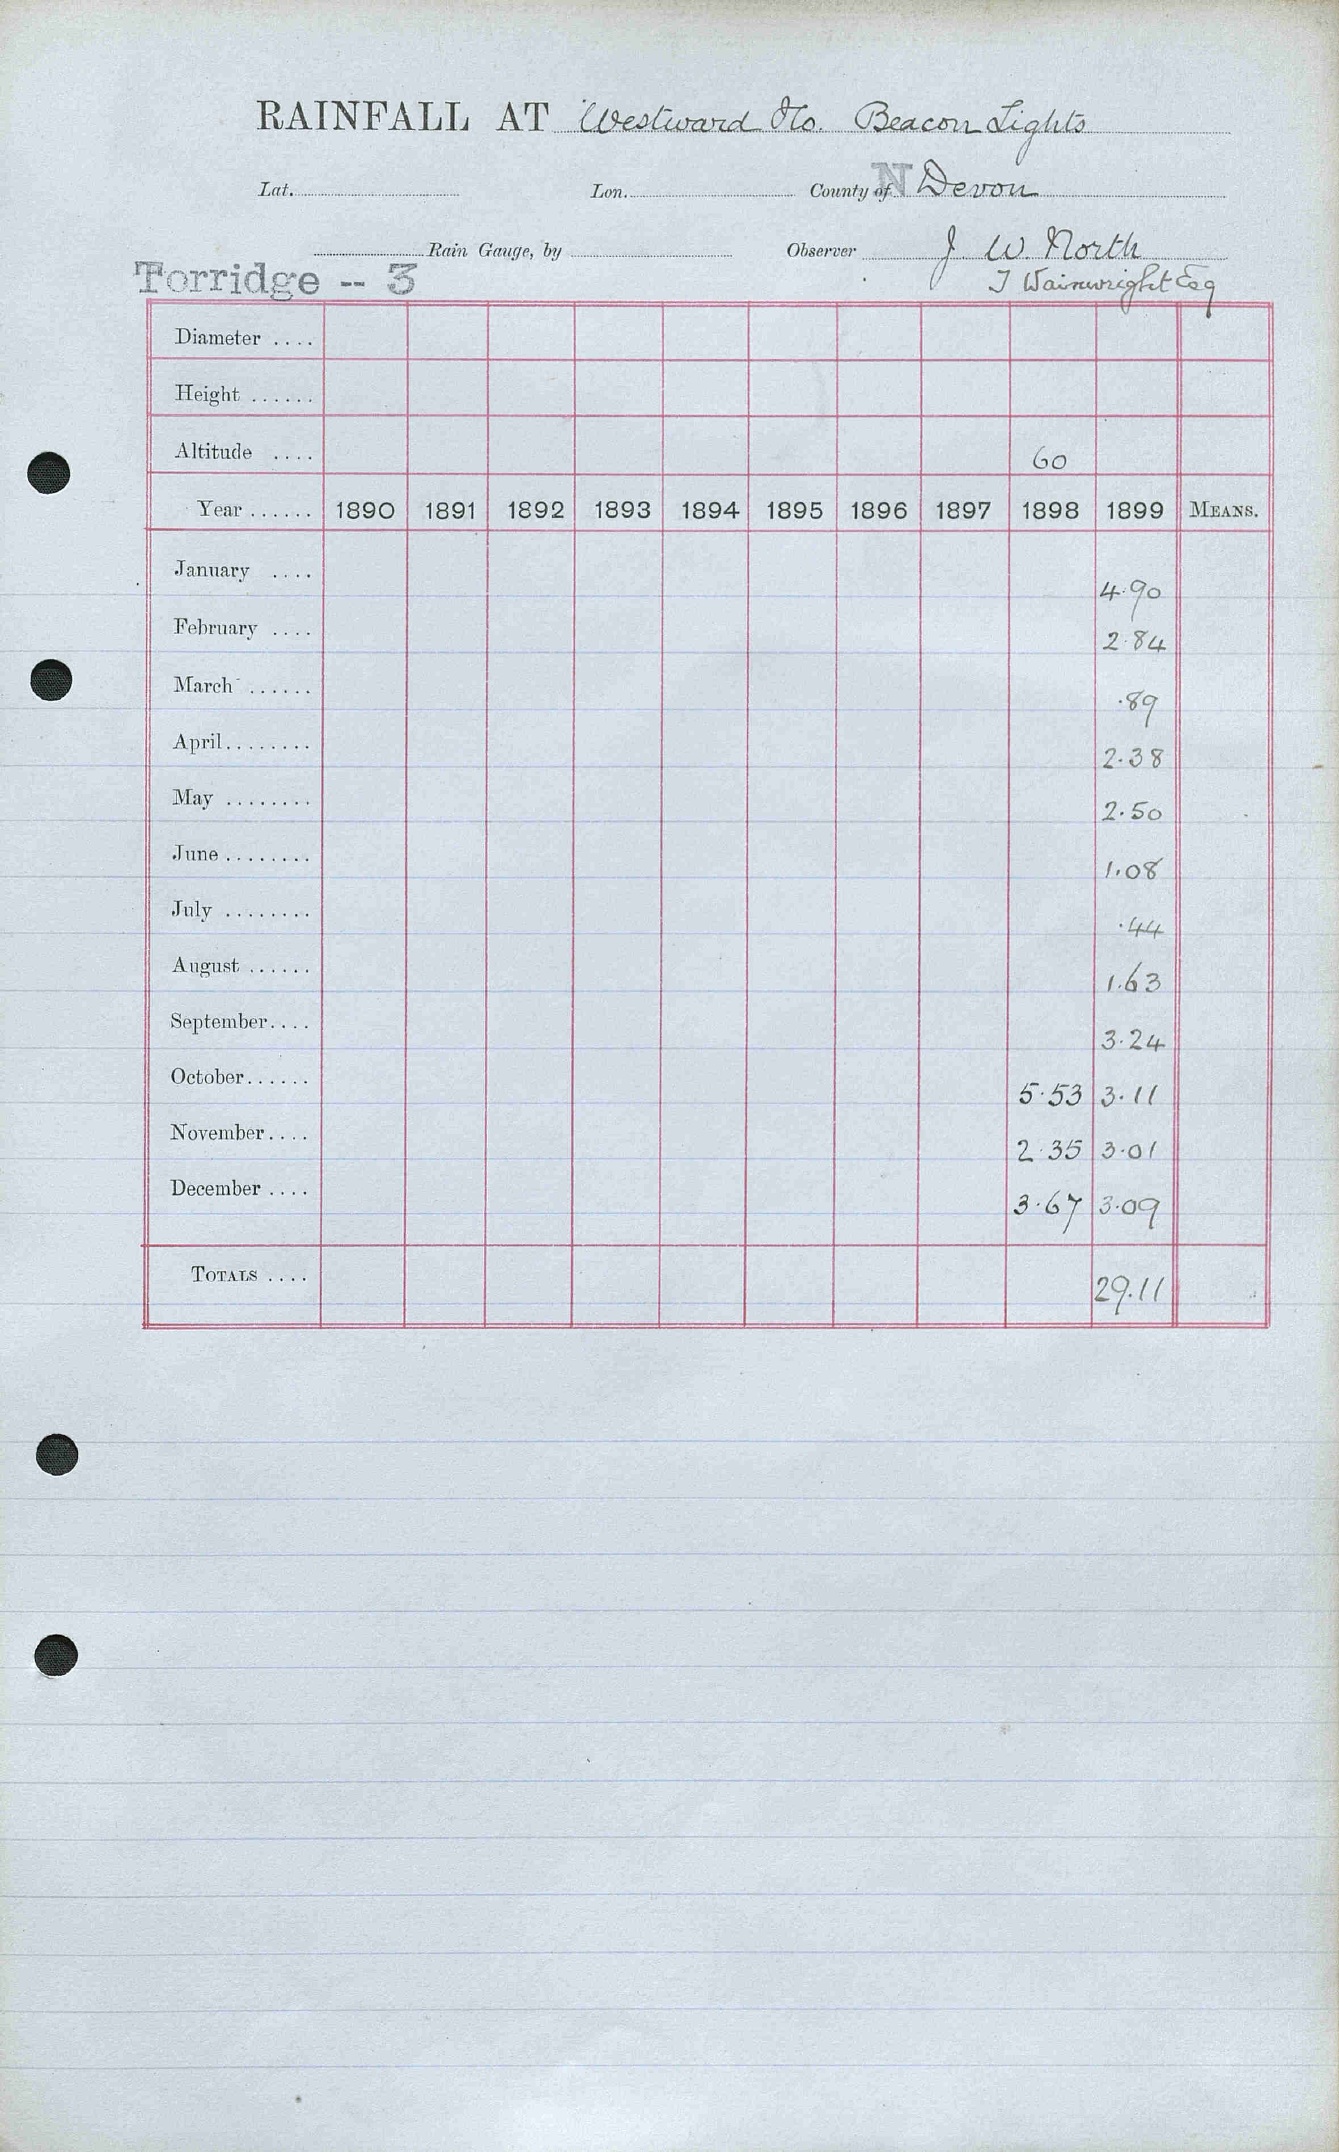 RAINFALL AT Westward Ho. Beacon Lights
Lat. Lon. County of N Devon
Rain Gauge, by Observer J. W. North
Torridge -- 3 J Wainwright Esq
Diameter ....
Height ......
Altitude .... 60
Year ...... 1890 1891 1892 1893 1894 1895 1896 1897 1898 1899 MEANS.
January .... 4.90
February .... 2.84
March ...... .89
April........ 2.38
May ........ 2.50
June ........ 1.08
July ........ .44
August ...... 1.63
September.... 3.24
October...... 5.53 3.11
November.... 2.35 3.01
December .... 3.67 3.09
TOTALS .... 29.11